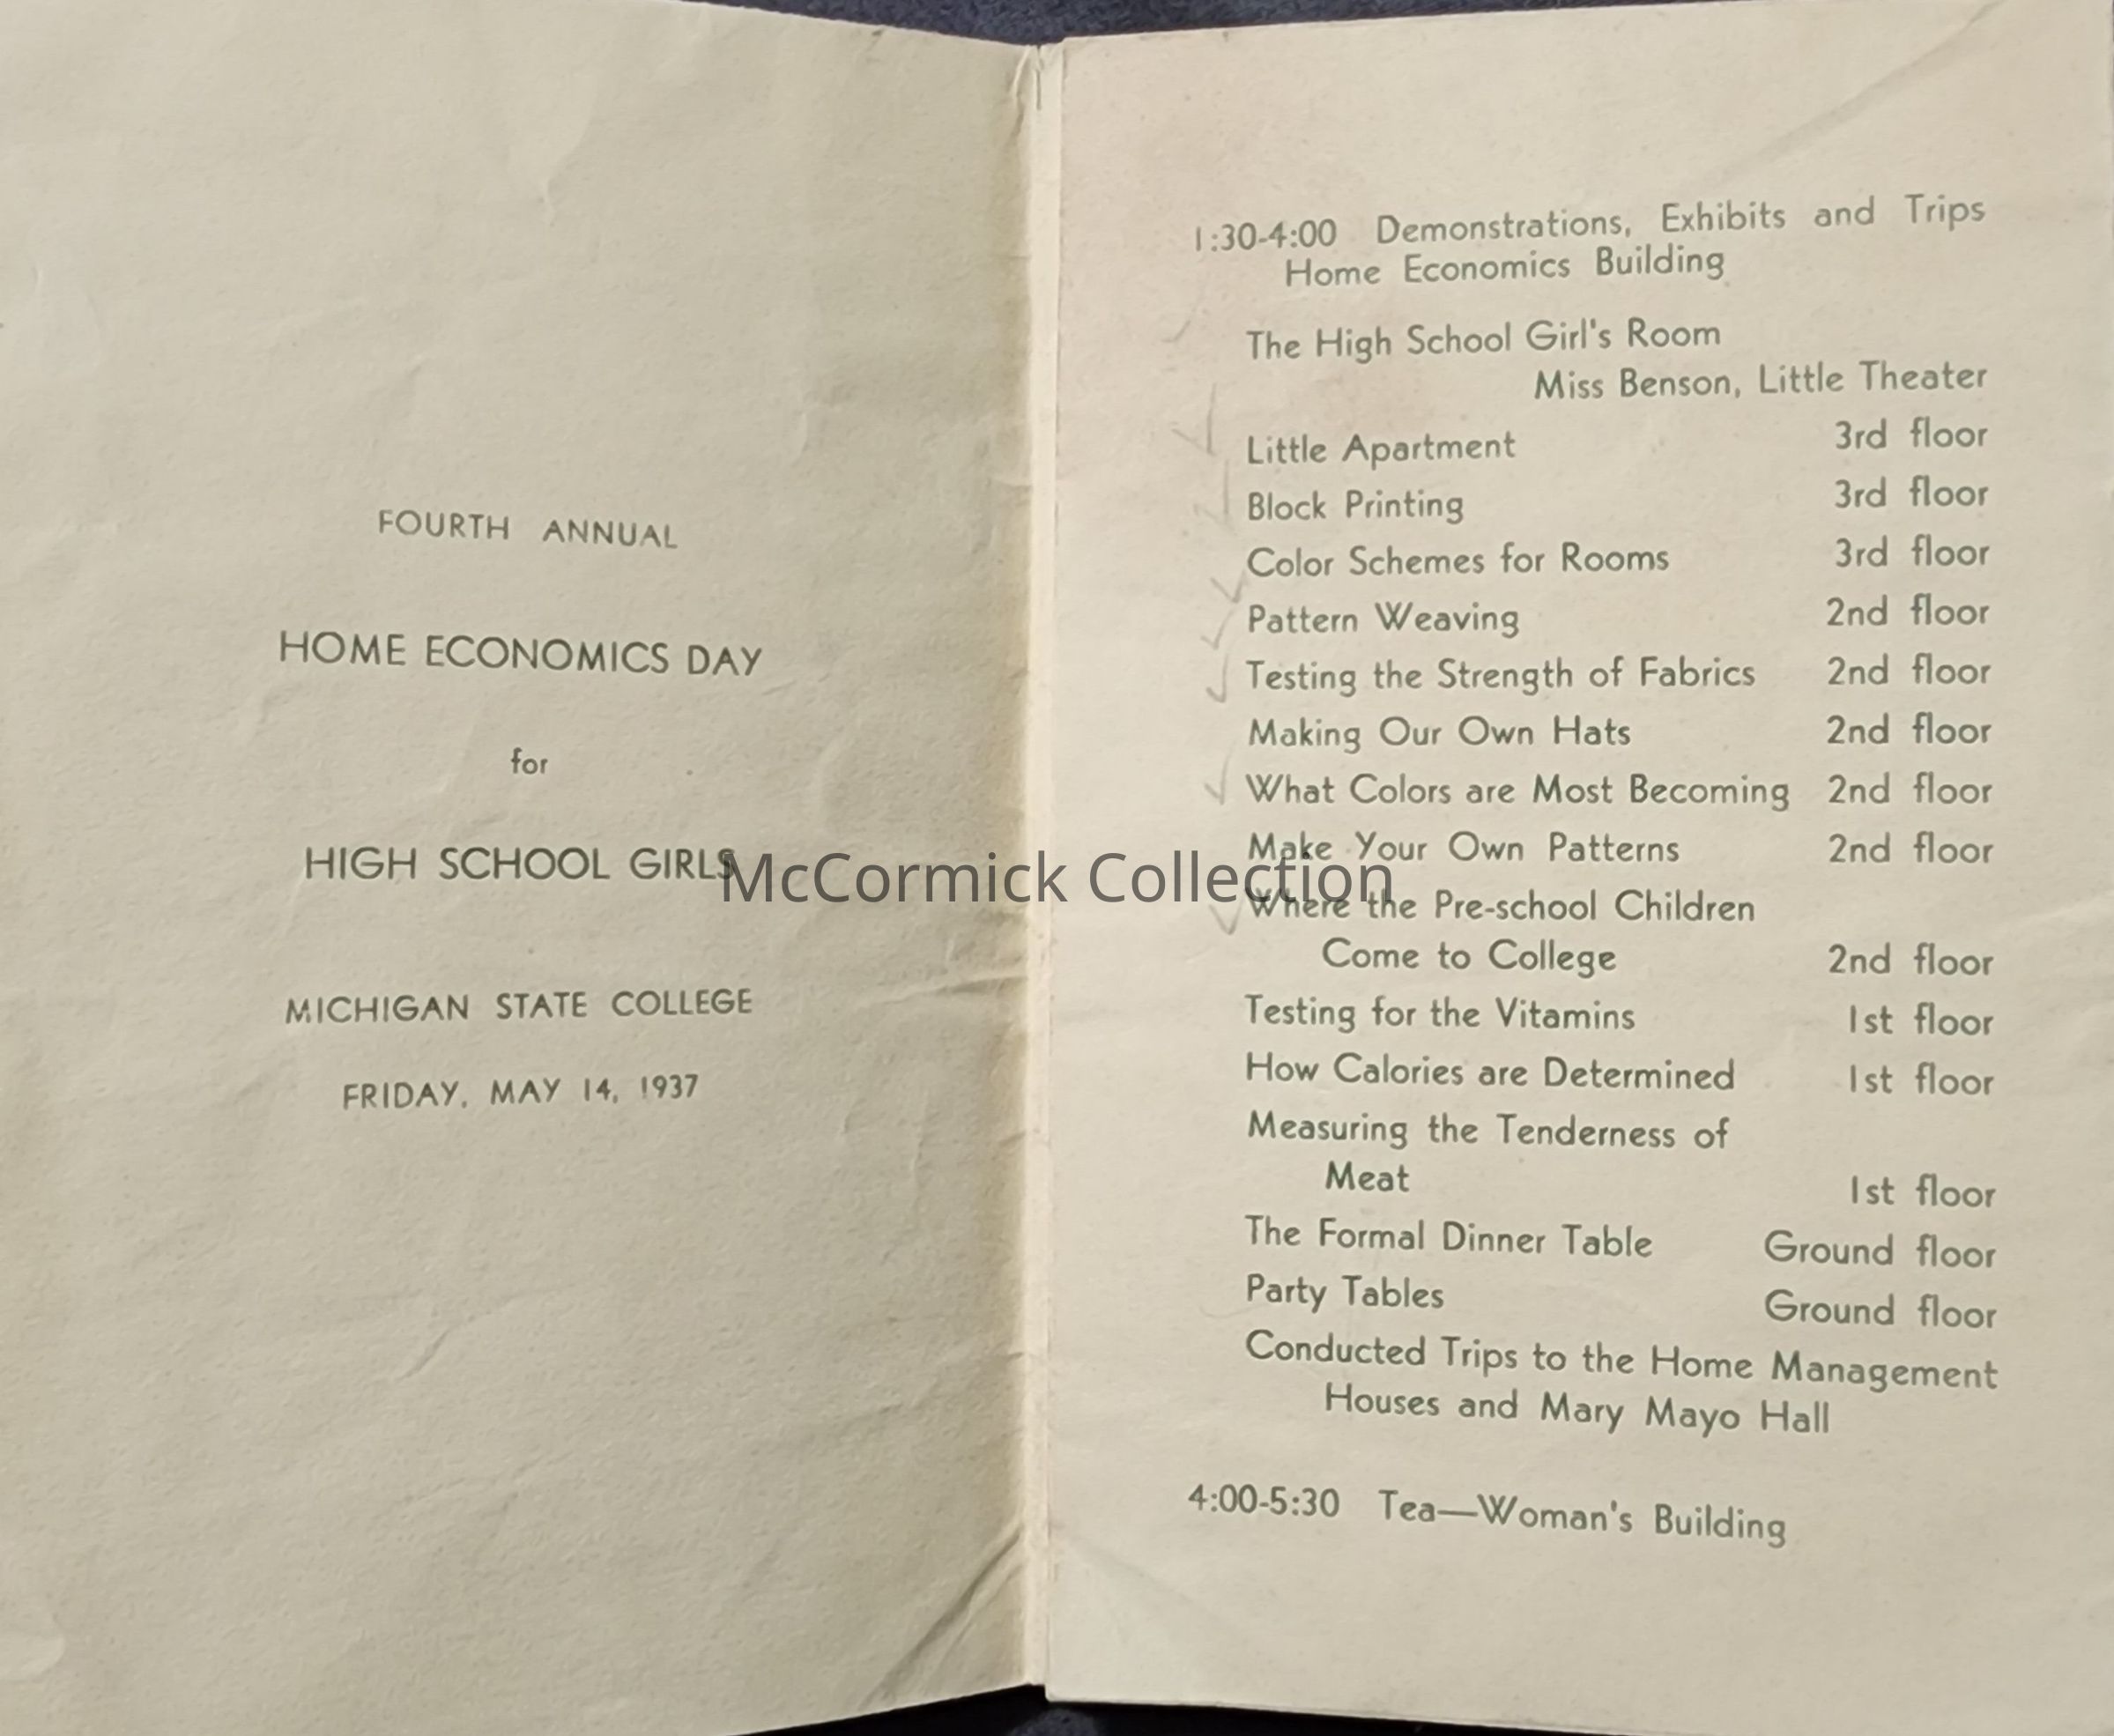 FOURTH ANNUAL
HOME ECONOMICS DAY
for
HIGH SCHOOL GIRLS
MICHIGAN STATE COLLEGE
FRIDAY, MAY 14, 1937
1:30-4:00 Demonstrations, Exhibits and Trips
Home Economics Building
The High School Girl's Room
Miss Benson, Little Theater
Little Apartment 3rd floor
Block Printing 3rd floor
Color Schemes for Rooms 3rd floor
Pattern Weaving 2nd floor
Testing the Strength of Fabrics 2nd floor
Making Our Own Hats 2nd floor
What Colors are Most Becoming 2nd floor
Make Your Own Patterns 2nd floor
Where the Pre-school Children
Come to College 2nd floor
Testing for the Vitamins 1st floor
How Calories are Determined 1st floor
Measuring the Tenderness of
Meat 1st floor
The Formal Dinner Table Ground floor
Party Tables Ground floor
Conducted Trips to the Home Management
Houses and Mary Mayo Hall
4:00-5:30 Tea—Woman's Building
McCormick Collection